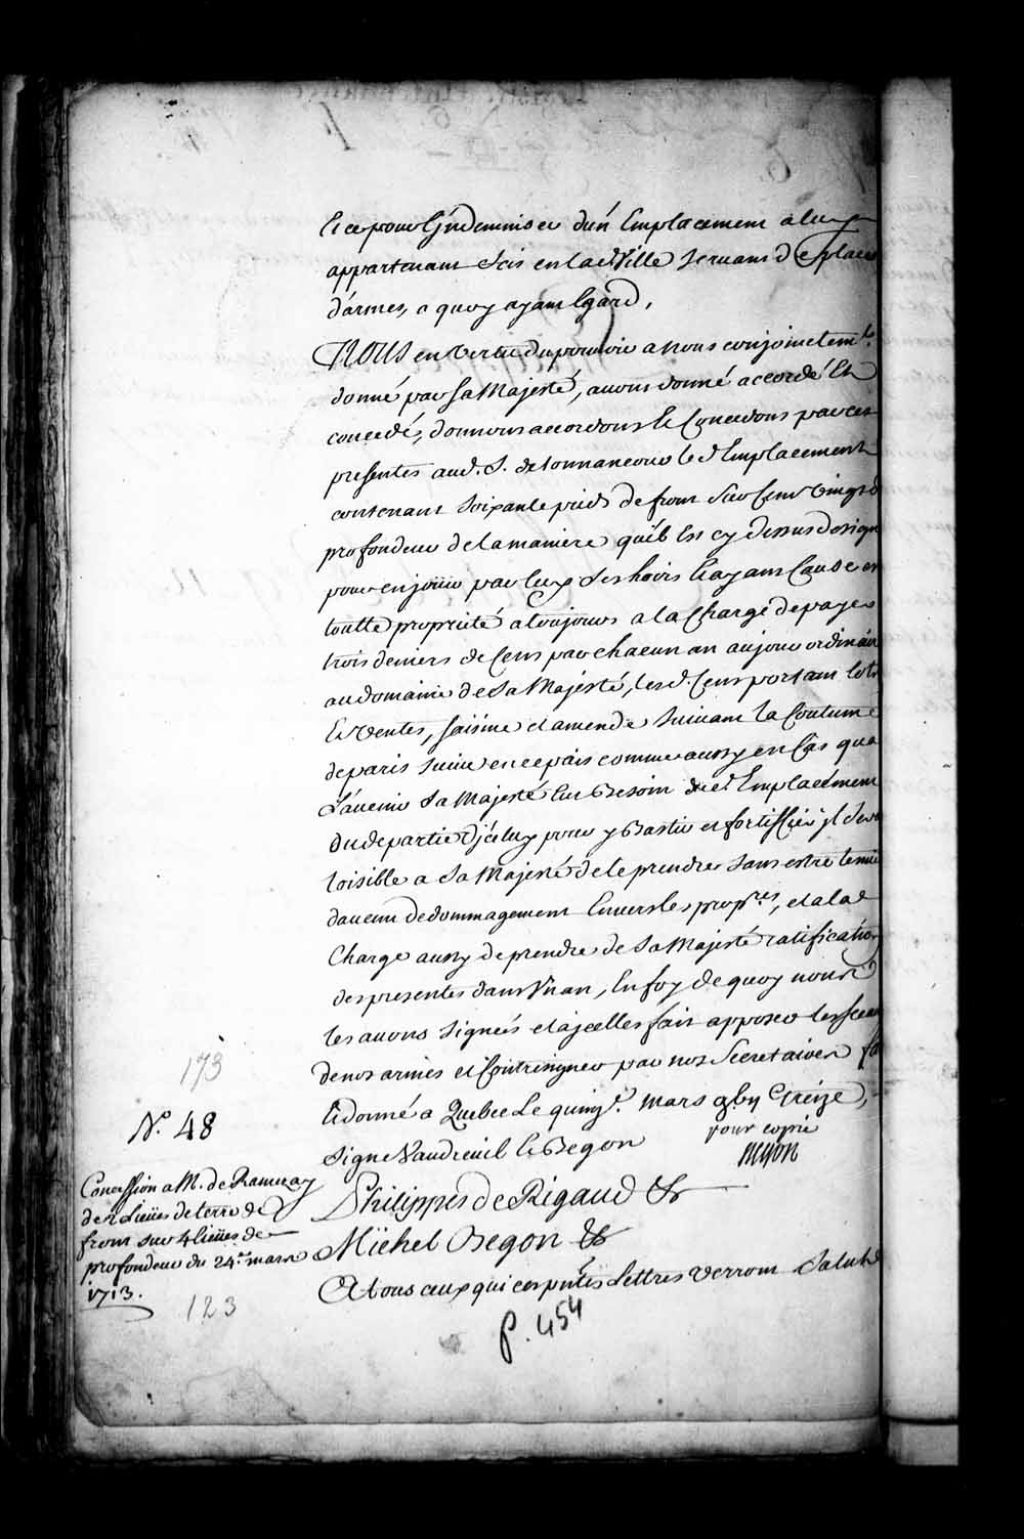 Et ce pour l'indemniser d'un Emplacement a luy
appartenant scis en lad. Ville servant de place
d'armes, a quoy ayant Egard,
NOUS en vertu du pouvoir a nous conjoinctemt.
donné par sa Majesté, avons donné accordé Et
concedé, donnons accordons Et Concedons par ces
presentes aud. S. de tonnancour led Emplacement
contenant soixante pieds de front sur Cent vingt d
profondeur de la maniere qu'il Est cy dessus design
pour en joüir par luy Ses hoirs Et ayans Cause en
toutte propriété a toujours a la Charge de payer
trois deniers de Cens par chacun an aujour ordinair
au domaine de Sa Majesté, lesd. Cens portant lots
Et ventes, saisine et amende suivant la Coutume
de paris suivie en ce païs comme aussy en Cas que
L'avenir Sa Majesté Eut Besoin dud Emplacement
Ou de partie d'jceluy pour y Bastir et fortiffier jl sera
loisible a Sa Majesté de le prendre sans estre tenue
d'aucun dedommagement Envers les propres, et a la
Charge aussy de prendre de Sa Majesté ratification
des presentes dans Un an, En foy de quoy nous
les avons signées et a jcelles fait apposer les sceau
de nos armes et Contresigner par nos Secretaires fa
Et donné a Quebec Le quinze. mars gbij Treize,
Signé Vaudreuil Et Begon
pour copie
173
N.º 48
Concession a M. de Ramezay
de 2 Lieües de terre de
front sur 4 lieües de
profondeur du 24.e mars
1713.
123
Philippes de Rigaud &
Michel Begon &
A tous ceux qui ces pntés Lettres verront Salut
p. 454